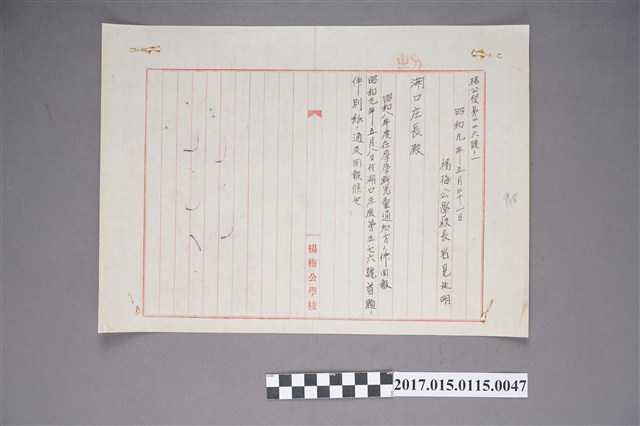 楊公發第四一六號ノ一
昭和九年五月三十一日
楊梅公學校長 岩見
湖口庄長殿
昭和八年度在庠學齡兒童通知方ノ件回報
昭和九年五月八日付湖口庄庶第五七六號首題ノ
件別紙ノ通及回報候也
楊梅公學校
2017.015.0115.0047